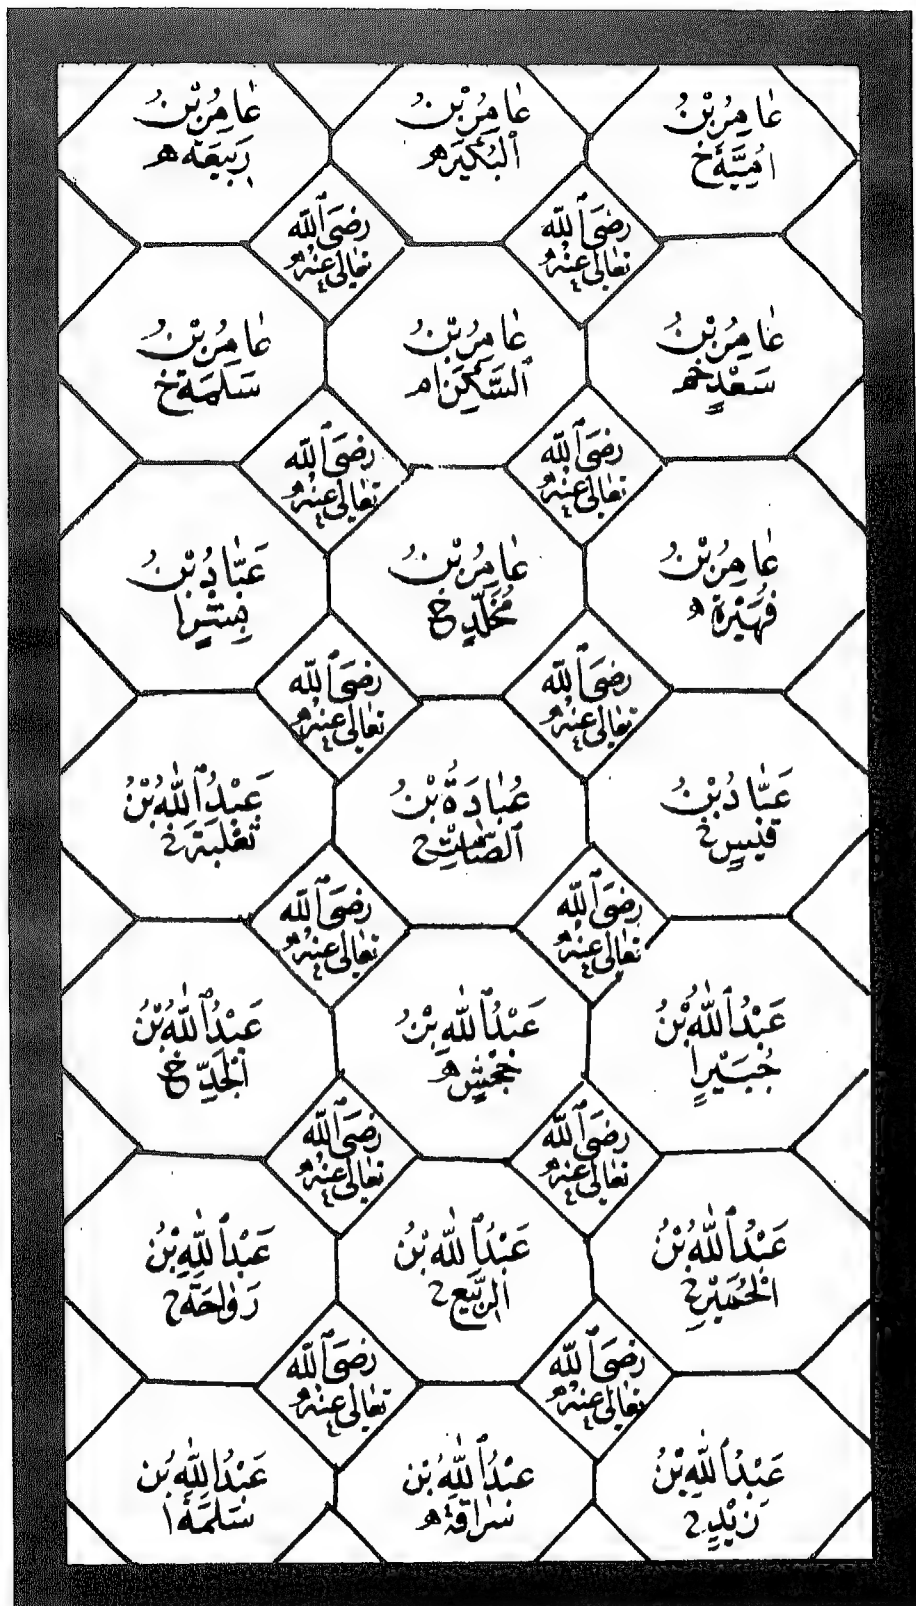 عَامِرُ بْنُ
اُمَيَّةَ خ
عَامِرُ بْنُ
الْبُكَيْرِ ه
عَامِرُ بْنُ
رَبِيعَةَ ه
رَضِيَ اللّٰه
تَعَالٰى عَنْهُ
رَضِيَ اللّٰه
تَعَالٰى عَنْهُ
عَامِرُ بْنُ
سَعْدٍ
عَامِرُ بْنُ
السَّكَنِ
عَامِرُ بْنُ
سَلَمَةَ خ
رَضِيَ اللّٰه
تَعَالٰى عَنْهُ
رَضِيَ اللّٰه
تَعَالٰى عَنْهُ
عَامِرُ بْنُ
فُهَيْرَةَ ه
عَامِرُ بْنُ
مُخَلَّدٍ خ
عَبَّادُ بْنُ
بِشْرٍ ا
رَضِيَ اللّٰه
تَعَالٰى عَنْهُ
رَضِيَ اللّٰه
تَعَالٰى عَنْهُ
عَبَّادُ بْنُ
قَيْسٍ
عُبَادَةُ بْنُ
الصَّامِتِ
عَبْدُ اللّٰهِ بْنُ
ثَعْلَبَةَ
رَضِيَ اللّٰه
تَعَالٰى عَنْهُ
رَضِيَ اللّٰه
تَعَالٰى عَنْهُ
عَبْدُ اللّٰهِ بْنُ
جُبَيْرٍ ا
عَبْدُ اللّٰهِ بْنُ
جَحْشٍ ه
عَبْدُ اللّٰهِ بْنُ
الْجَدِّ خ
رَضِيَ اللّٰه
تَعَالٰى عَنْهُ
رَضِيَ اللّٰه
تَعَالٰى عَنْهُ
عَبْدُ اللّٰهِ بْنُ
الْحُمَيْرِ
عَبْدُ اللّٰهِ بْنُ
الرَّبِيعِ
عَبْدُ اللّٰهِ بْنُ
رَوَاحَةَ
رَضِيَ اللّٰه
تَعَالٰى عَنْهُ
رَضِيَ اللّٰه
تَعَالٰى عَنْهُ
عَبْدُ اللّٰهِ بْنُ
زَيْدٍ
عَبْدُ اللّٰهِ بْنُ
سُرَاقَةَ ه
عَبْدُ اللّٰهِ بْنُ
سَلَمَةَ ا